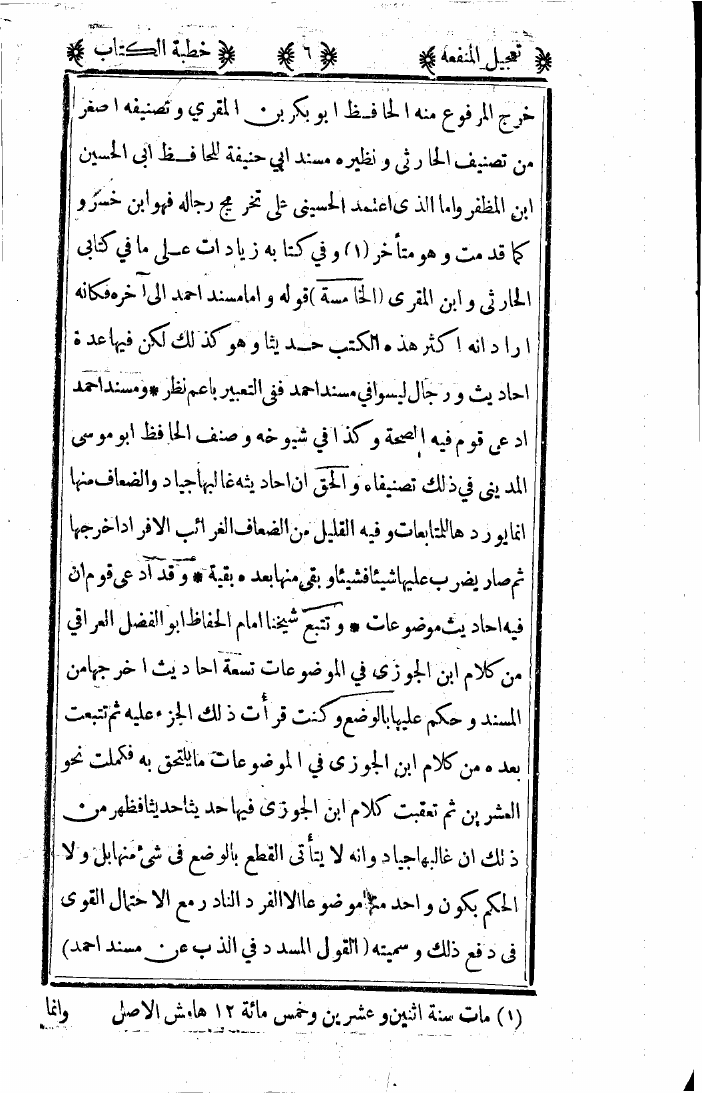 تعجيل المنفعه ٦ خطبة الكتاب
خرج المرفوع منه الحافظ ابو بكر بن المقري وتصنيفه اصغر
من تصنيف الحارثي ونظيره مسند ابي حنيفة للحافظ ابى الحسين
ابن المظفر واما الذى اعتمد الحسينى على تخريج رجاله فهو ابن خسرو
كما قدمت وهو متأخر (١) وفي كتابه زيادات على ما في كتابى
الحارثى وابن المقرى (الخامسة) قوله واما مسند احمد الى آخره فكانه
اراد انه اكثر هذه الكتب حديثا وهو كذلك لكن فيها عدة
احاديث ورجال ليسوا في مسند احمد ففى التعبير باعم نظر * ومسند احمد
ادعى قوم فيه الصحة وكذا في شيوخه وصنف الحافظ ابو موسى
المدينى في ذلك تصنيفاه والحق ان احاديثه غالبها جياد والضعاف منها
انما يوردها للمتابعات وفيه القليل من الضعاف الغرائب الافراد اخرجها
ثم صار يضرب عليها شيئا فشيئا وبقى منها بعده بقية * وقد ادعى قوم ان
فيه احاديث موضوعات * وتتبع شيخنا امام الحفاظ ابو الفضل العراقي
من كلام ابن الجوزى في الموضوعات تسعة احاديث اخرجها من
المسند وحكم عليها بالوضع وكنت قرأت ذلك الجزء عليه ثم تتبعت
بعده من كلام ابن الجوزى في الموضوعات ما يلتحق به فكملت نحو
العشرين ثم تعقبت كلام ابن الجوزى فيها حديثا حديثا فظهر من
ذلك ان غالبها جياد وانه لا يتأتى القطع بالوضع فى شئ منها بل ولا
الحكم بكون واحد منها موضوعا الا الفرد النادر مع الاحتمال القوى
فى دفع ذلك وسميته (القول المسدد في الذب عن مسند احمد)
(١) مات سنة اثنين وعشرين وخمس مائة ١٢ هامش الاصل وانما